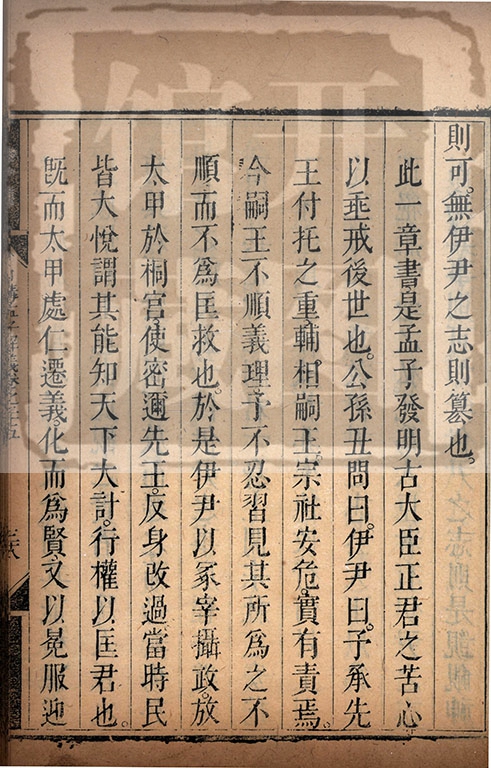 則可。無伊尹之志則篡也。
此一章書是孟子發明古大臣正君之苦心
以垂戒後世也。公孫丑問曰。伊尹曰。予承先
王付托之重輔相嗣王。宗社安危。實有責焉。
今嗣王不順義理予不忍習見其所為之不
順而不為匡救也。於是伊尹以冢宰攝政。放
太甲於桐宮。使密邇先王。反身改過當時民
皆大悅謂其能知天下大計。行權以匡君也。
旣而太甲處仁遷義。化而為賢又以冕服迎